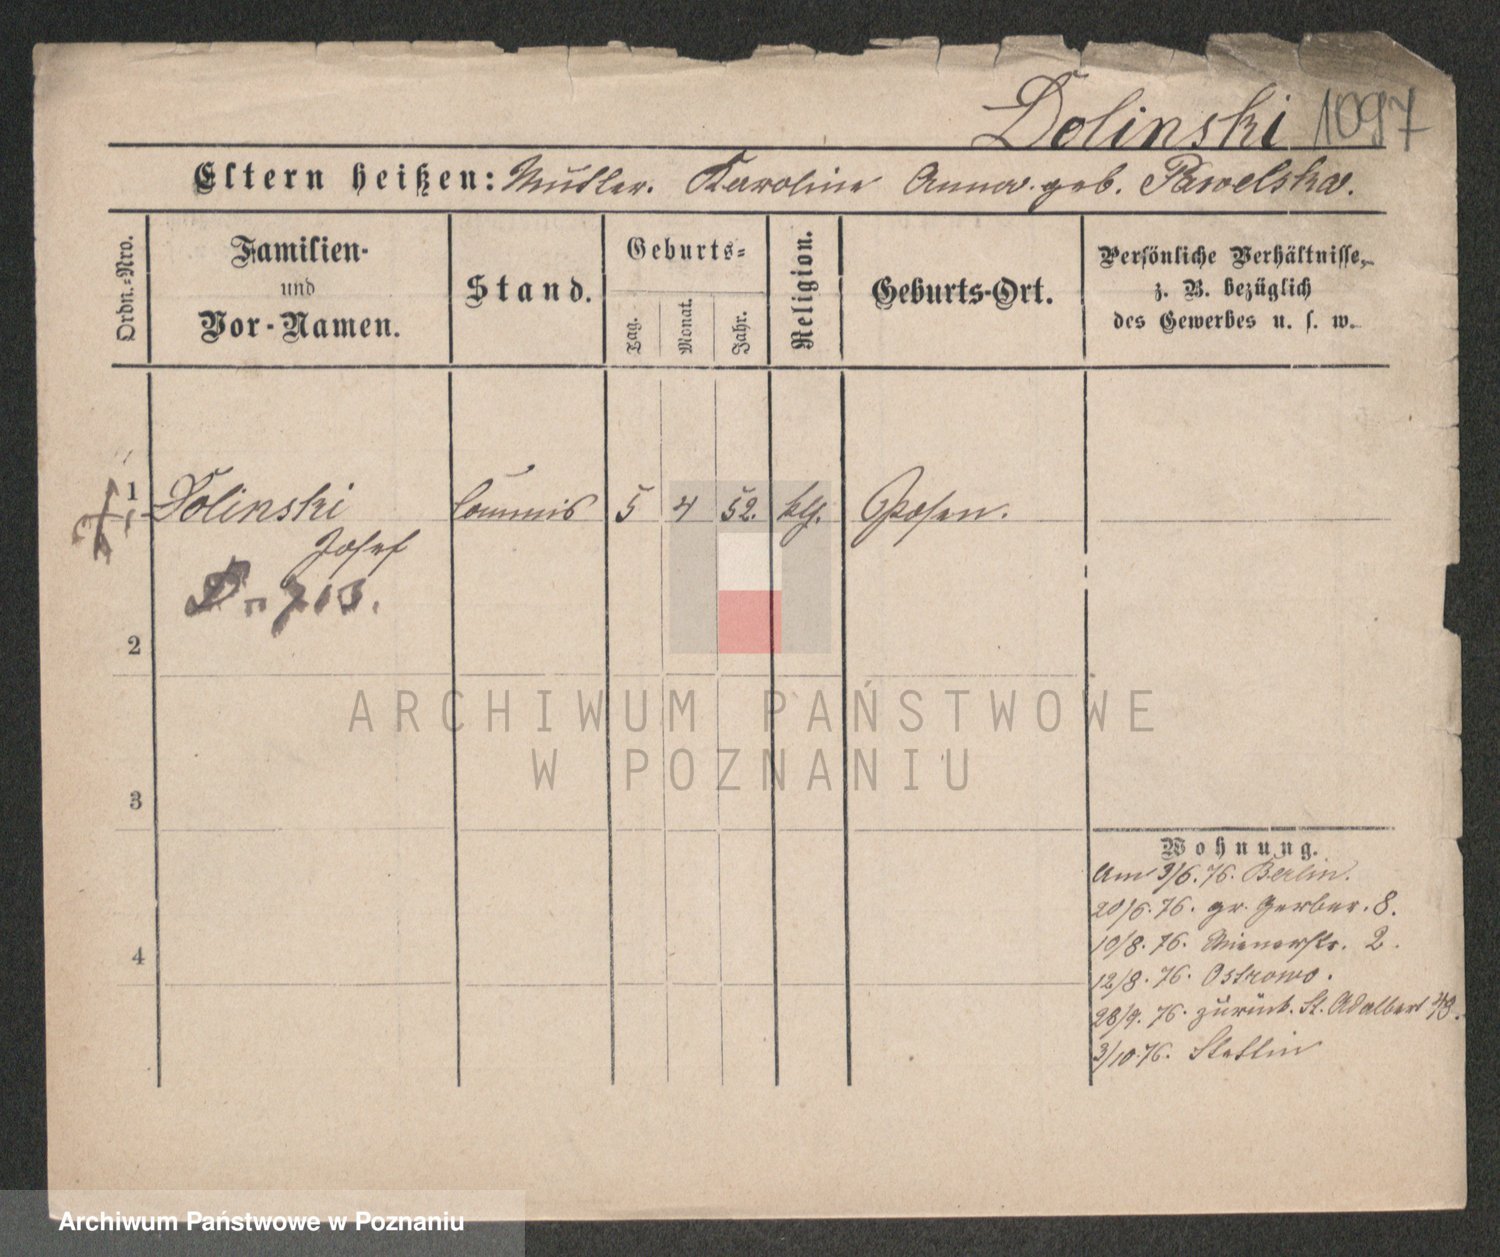 Dolinski 1097
Eltern heißen: Mutter. Karoline Anna geb. Pawelska.
Ordn.-Nro.
Familien-
und
Vor-Namen.
Stand.
Geburts-
Tag.
Monat.
Jahr.
Religion.
Geburts-Ort.
Persönliche Verhältnisse,
z. B. bezüglich
des Gewerbes u. s. w.
1 Dolinski Commis 5 4 52. klg. Posen.
Josef
D. 713.
2
3
4
Wohnung.
Am 3/6. 76. Berlin.
20/6. 76. gr. Gerber. 8.
10/8. 76. Wienerstr. 2.
12/8. 76. Ostrowo.
28/9. 76. zurück. St. Adalbert 43.
3/10. 76. Stettin
ARCHIWUM PAŃSTWOWE
W POZNANIU
Archiwum Państwowe w Poznaniu